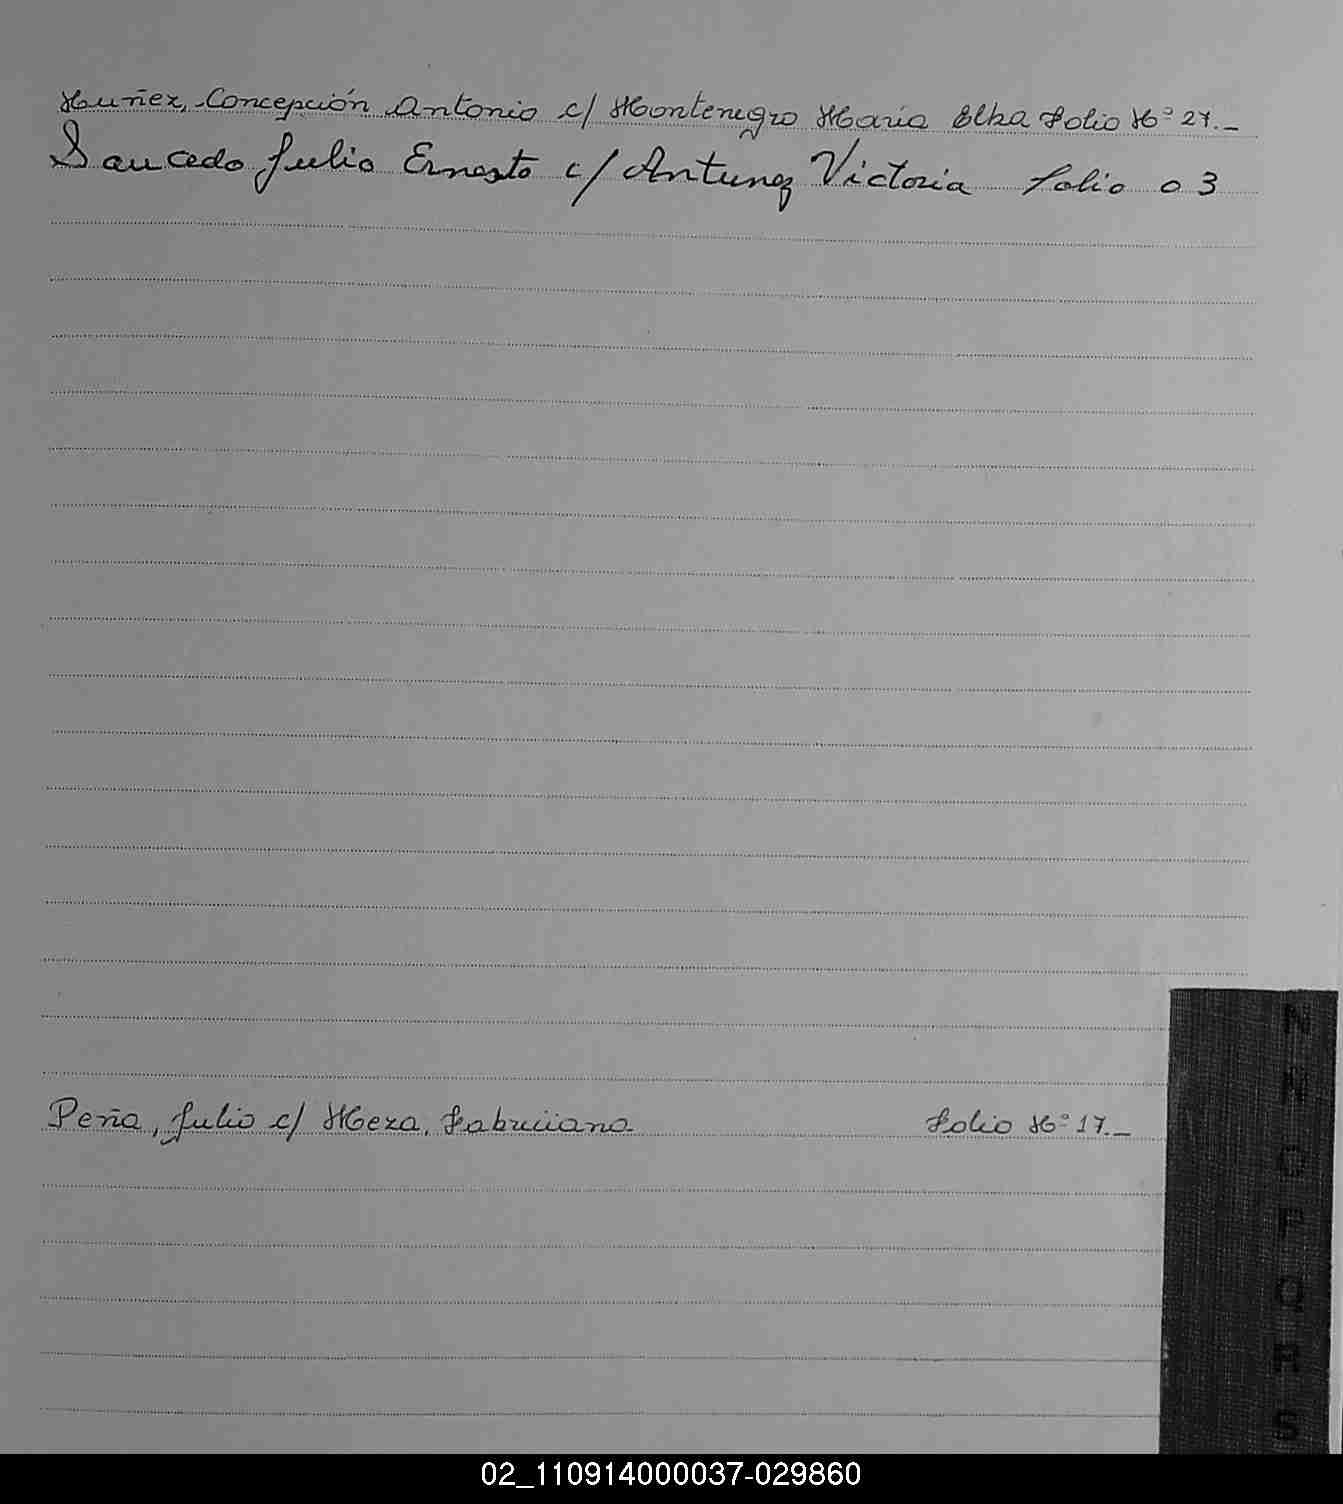 Nuñez, Concepción Antonio c/ Montenegro María Elba Folio Nº 27.-
Saucedo Julio Ernesto c/ Antunez Victoria Folio 03
Peña, Julio c/ Meza, Fabriciana Folio Nº 17.-
N
Ñ
O
P
Q
R
S
02_110914000037-029860